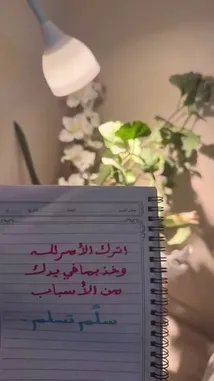 اترك الأمر لله
وخذ بما في يدك
من الأسباب
سلّم تسلم